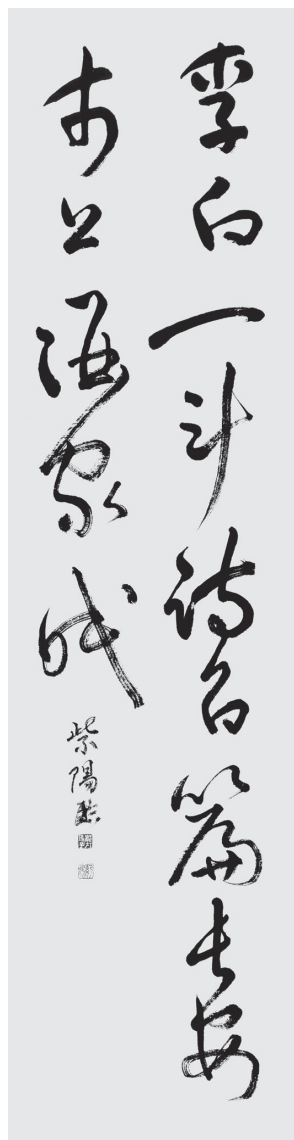 李白一斗詩百篇長安
市上酒家眠
紫陽